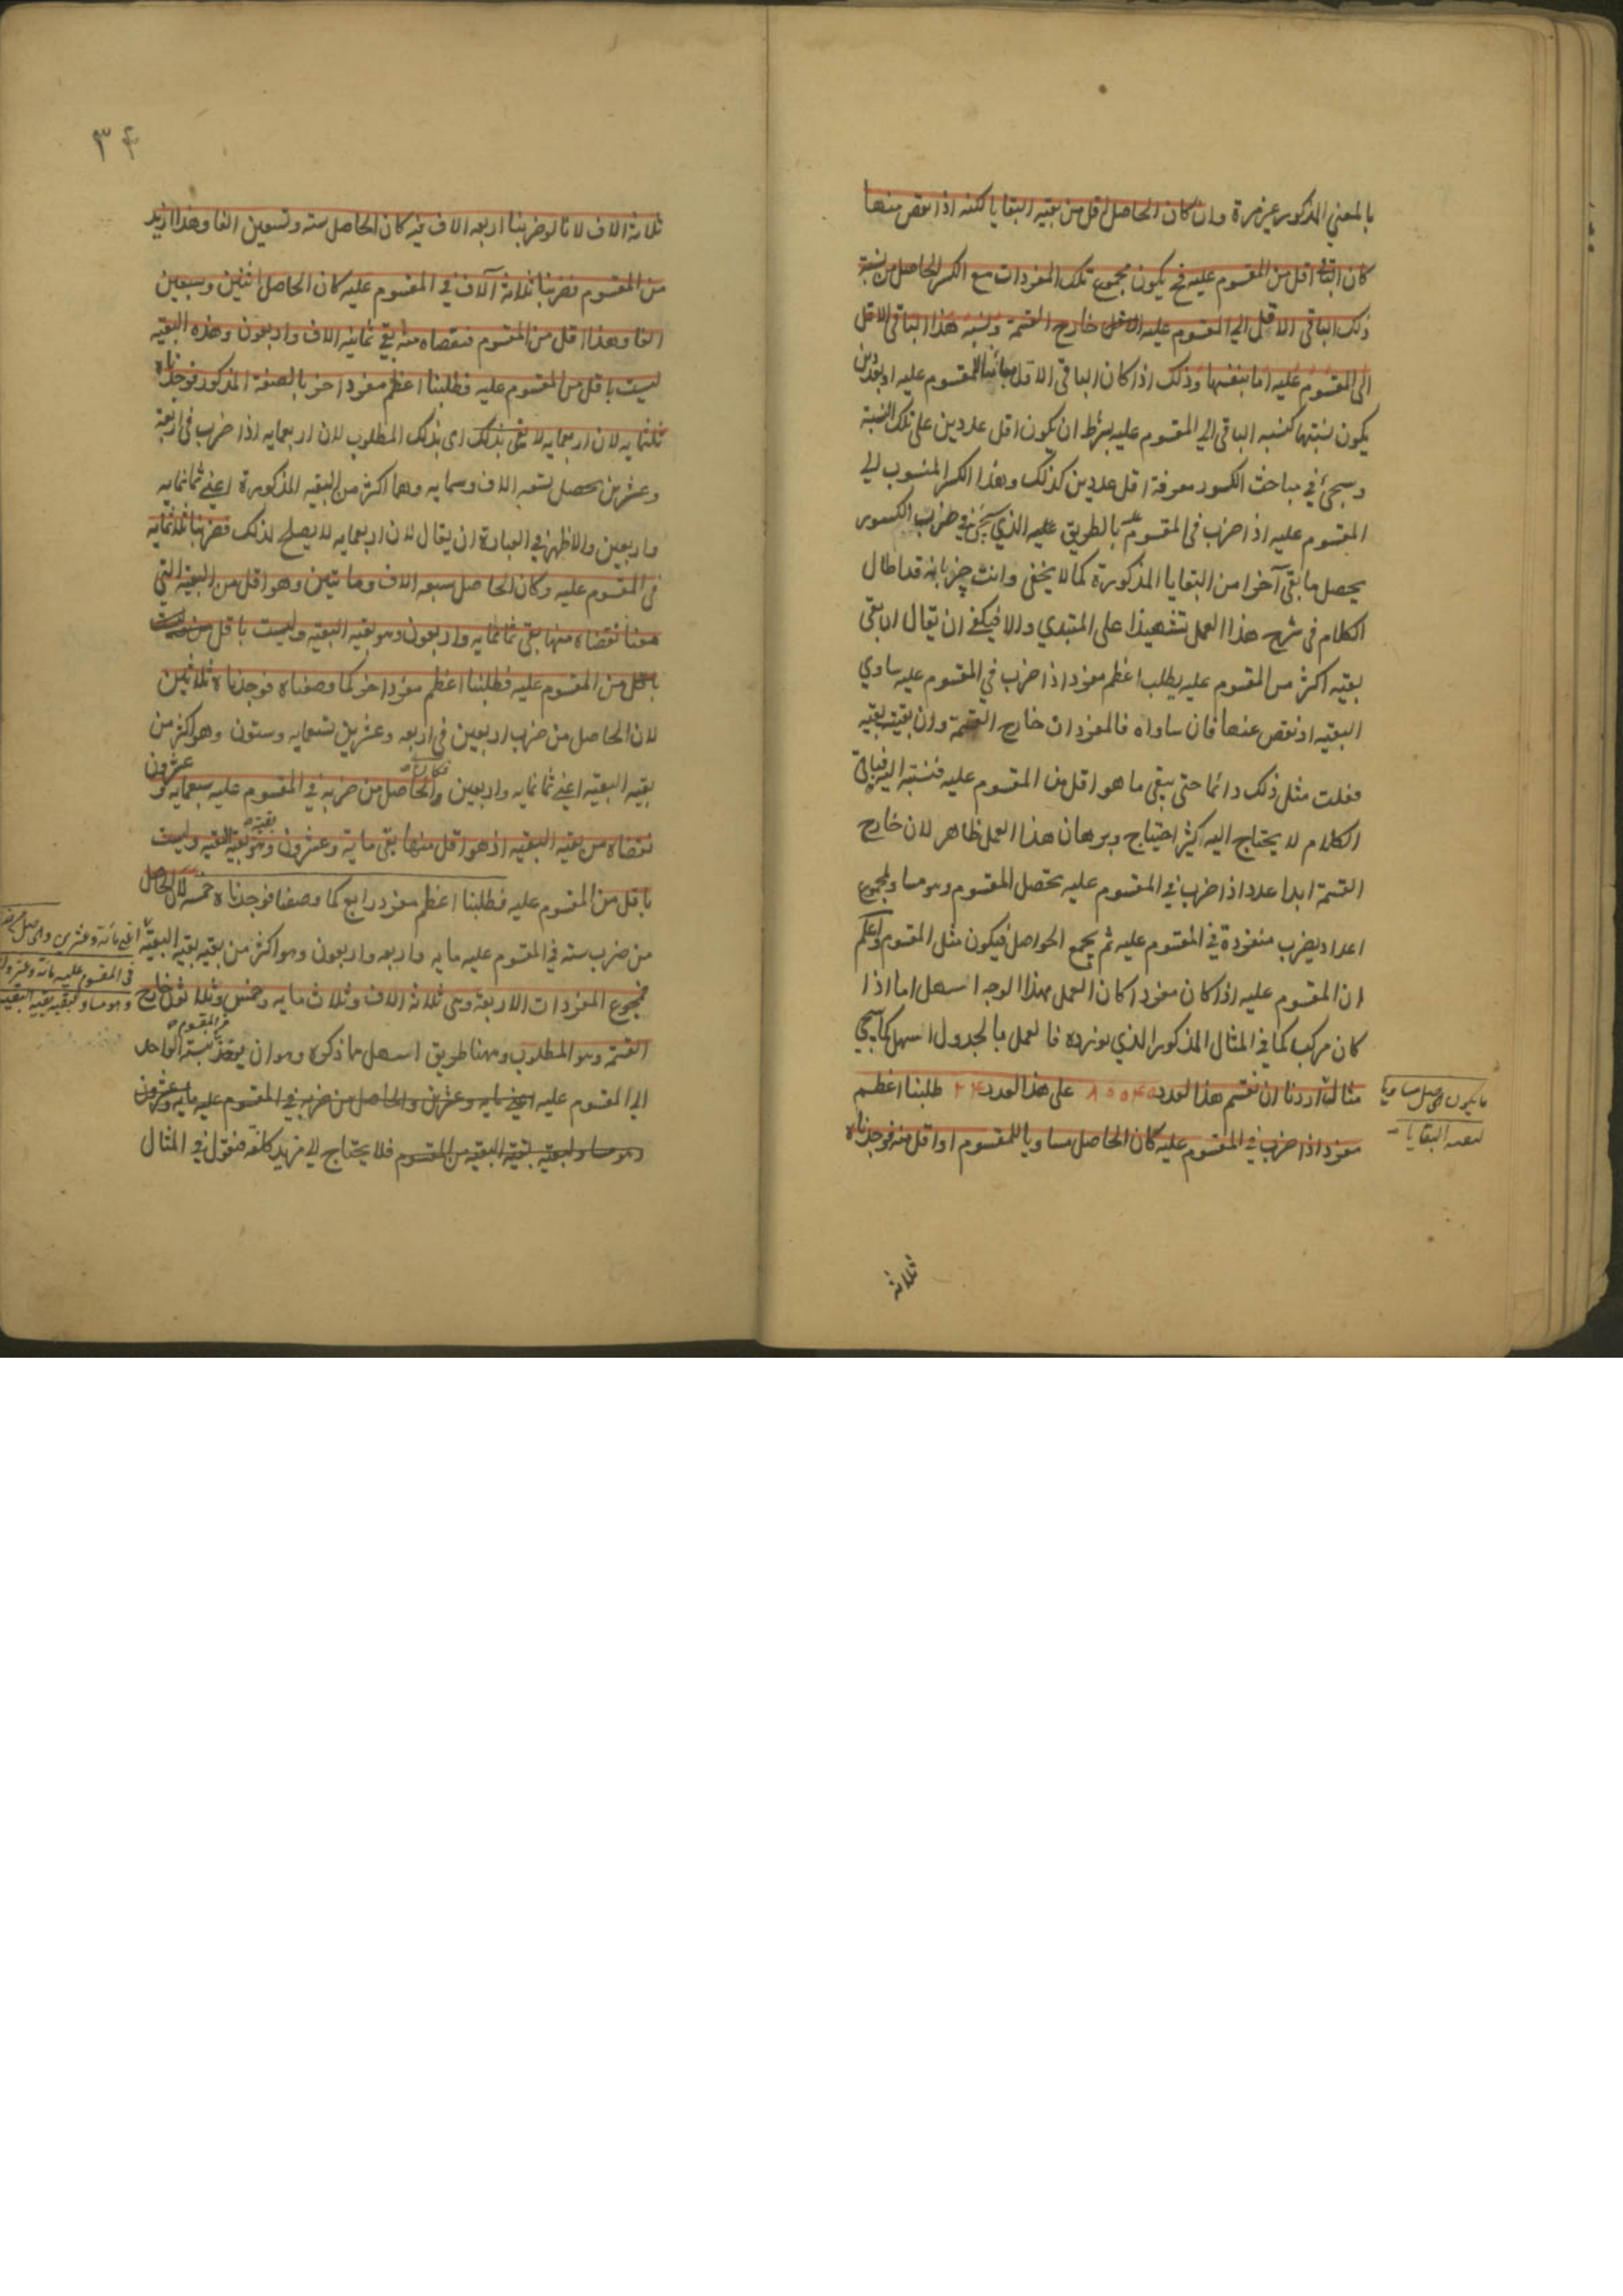 بالمعني المذكور غير مرة وان كان الحاصل اقل من بقيه البقايا لكنه اذا نقص منها
كان الباقي اقل من المقسوم عليه فح يكون مجموع تلك المفردات مع الكسر الحاصل من نسبة
ذلك الباقي الاقل الى المقسوم عليه خارج القسمة ونسبة هذا الباقي الاقل
الى المقسوم عليه اما بنفسها وذلك اذا كان الباقي الاقل مباينا للمقسوم عليه او بعددين
يكون نسبتهما كنسبه الباقي الي المقسوم عليه بشرط ان يكون اقل عددين على تلك النسبة
وسيجئ في مباحث الكسور معرفة اقل عددين كذلك وهذا الكسر المنسوب الي
المقسوم عليه اذا ضرب في المقسوم عليه بالطريق الذي يجئ في ضرب الكسور
يحصل ما بقي آخرا من البقايا المذكورة كما لا يخفى وانت خبر بانه قد اطال
الكلام في شرح هذا العمل تسهيلا على المبتدي والا فيكفي ان يقال ان بقي
بقيه اكثر من المقسوم عليه يطلب اعظم مفرد اذا ضرب في المقسوم عليه ساوي
البقيه او نقص عنها فان ساواه فالمفردات خارج القسمة وان بقيت بقيه
فعلت مثل ذلك دائما حتى يبقى ما هو اقل من المقسوم عليه فنسبته اليه فباقي
الكلام لا يحتاج اليه كثير احتياج وبرهان هذا العمل ظاهر لان خارج
القسمة ابدا عدد اذا ضرب في المقسوم عليه يحصل المقسوم وهو مساو لمجموع
اعداد يضرب منفردة في المقسوم عليه ثم يجمع الحواصل فيكون مثل المقسوم واعلم
ان المقسوم عليه اذا كان مفردا كان العمل بهذا الوجه اسهل اما اذا
كان مركب كما في المثال المذكور الذي نورده فالعمل بالجدول اسهل كما يجي
مثاله اردنا ان نقسم هذا العدد ٨٠٠٤٠ على هذا العدد ٢٤ طلبنا اعظم
مفرد اذا ضرب في المقسوم عليه كان الحاصل مساويا للمقسوم او اقل منه فوجدناه
ما يكون الحاصل مساويا
لبقيه البقايا
ثلاثه
٣٤
ثلاثة الاف لانا لو ضربنا اربعه الاف فيه كان الحاصل سته وتسعين الفا وهذا ازيد
من المقسوم فضربنا ثلاثة آلاف في المقسوم عليه كان الحاصل اثنين وسبعين
الفا وهذا اقل من المقسوم فنقصناه منه بقي ثمانيه الاف واربعون وهذه البقيه
ليست باقل من المقسوم عليه فطلبنا اعظم مفرد اخر بالصفة المذكور فوجدناه
ثلثمايه لان اربعمايه لا تفي بذلك اي بذلك المطلوب لان اربعمايه اذا ضرب في اربعة
وعشرين يحصل تسعه الاف وستمايه وهما اكثر من البقيه المذكورة اعني ثمانمايه
واربعين والاظهر في العبارة ان يقال لان اربعمايه لا يصلح لذلك فضربنا ثلثمايه
في المقسوم عليه وكان الحاصل سبعه الاف ومايتين وهو اقل من البقيه التي
معنا نقصناه منها بقي ثمانمايه واربعون وهو بقيه البقيه وليست باقل من
باقل من المقسوم عليه فطلبنا اعظم مفرد اخر كما وصفناه فوجدناه ثلاثين
لان الحاصل من ضرب اربعين في اربعه وعشرين تسعمايه وستون وهو اكثر من
بقيه البقيه اعني ثمانمايه واربعين فكان الحاصل من ضربه في المقسوم عليه سبعمايه وعشرون
نقصناه من بقيه البقيه اذ هو اقل منها بقي مايه وعشرون وهو بقيه بقيه البقيه وليست
باقل من المقسوم عليه فطلبنا اعظم مفرد رابع كما وصفنا فوجدناه خمسه لان الحاصل
من ضرب سته في المقسوم عليه مايه واربعه واربعون وهو اكثر من بقيه بقيه البقيه
فمجموع المفردات الاربعة وهي ثلاثه الاف وثلاث مايه وخمس وثلاثون خارج
القسمة وهو المطلوب وههنا طريق اسهل مما ذكره وهو ان يوخذ من المقسوم بنسبة الواحد
الى المقسوم عليه اعني مايه وعشرين والحاصل من ضربه في المقسوم عليه مايه وعشرون
وهو مساو لبقيه بقية البقيه من المقسوم فلا يحتاج الي مزيد كلفه فنقول في المثال
اعني مائة وعشرين والحاصل من ضربه
في المقسوم عليه مائة وعشرون
وهو مساو لبقيه بقيه البقيه